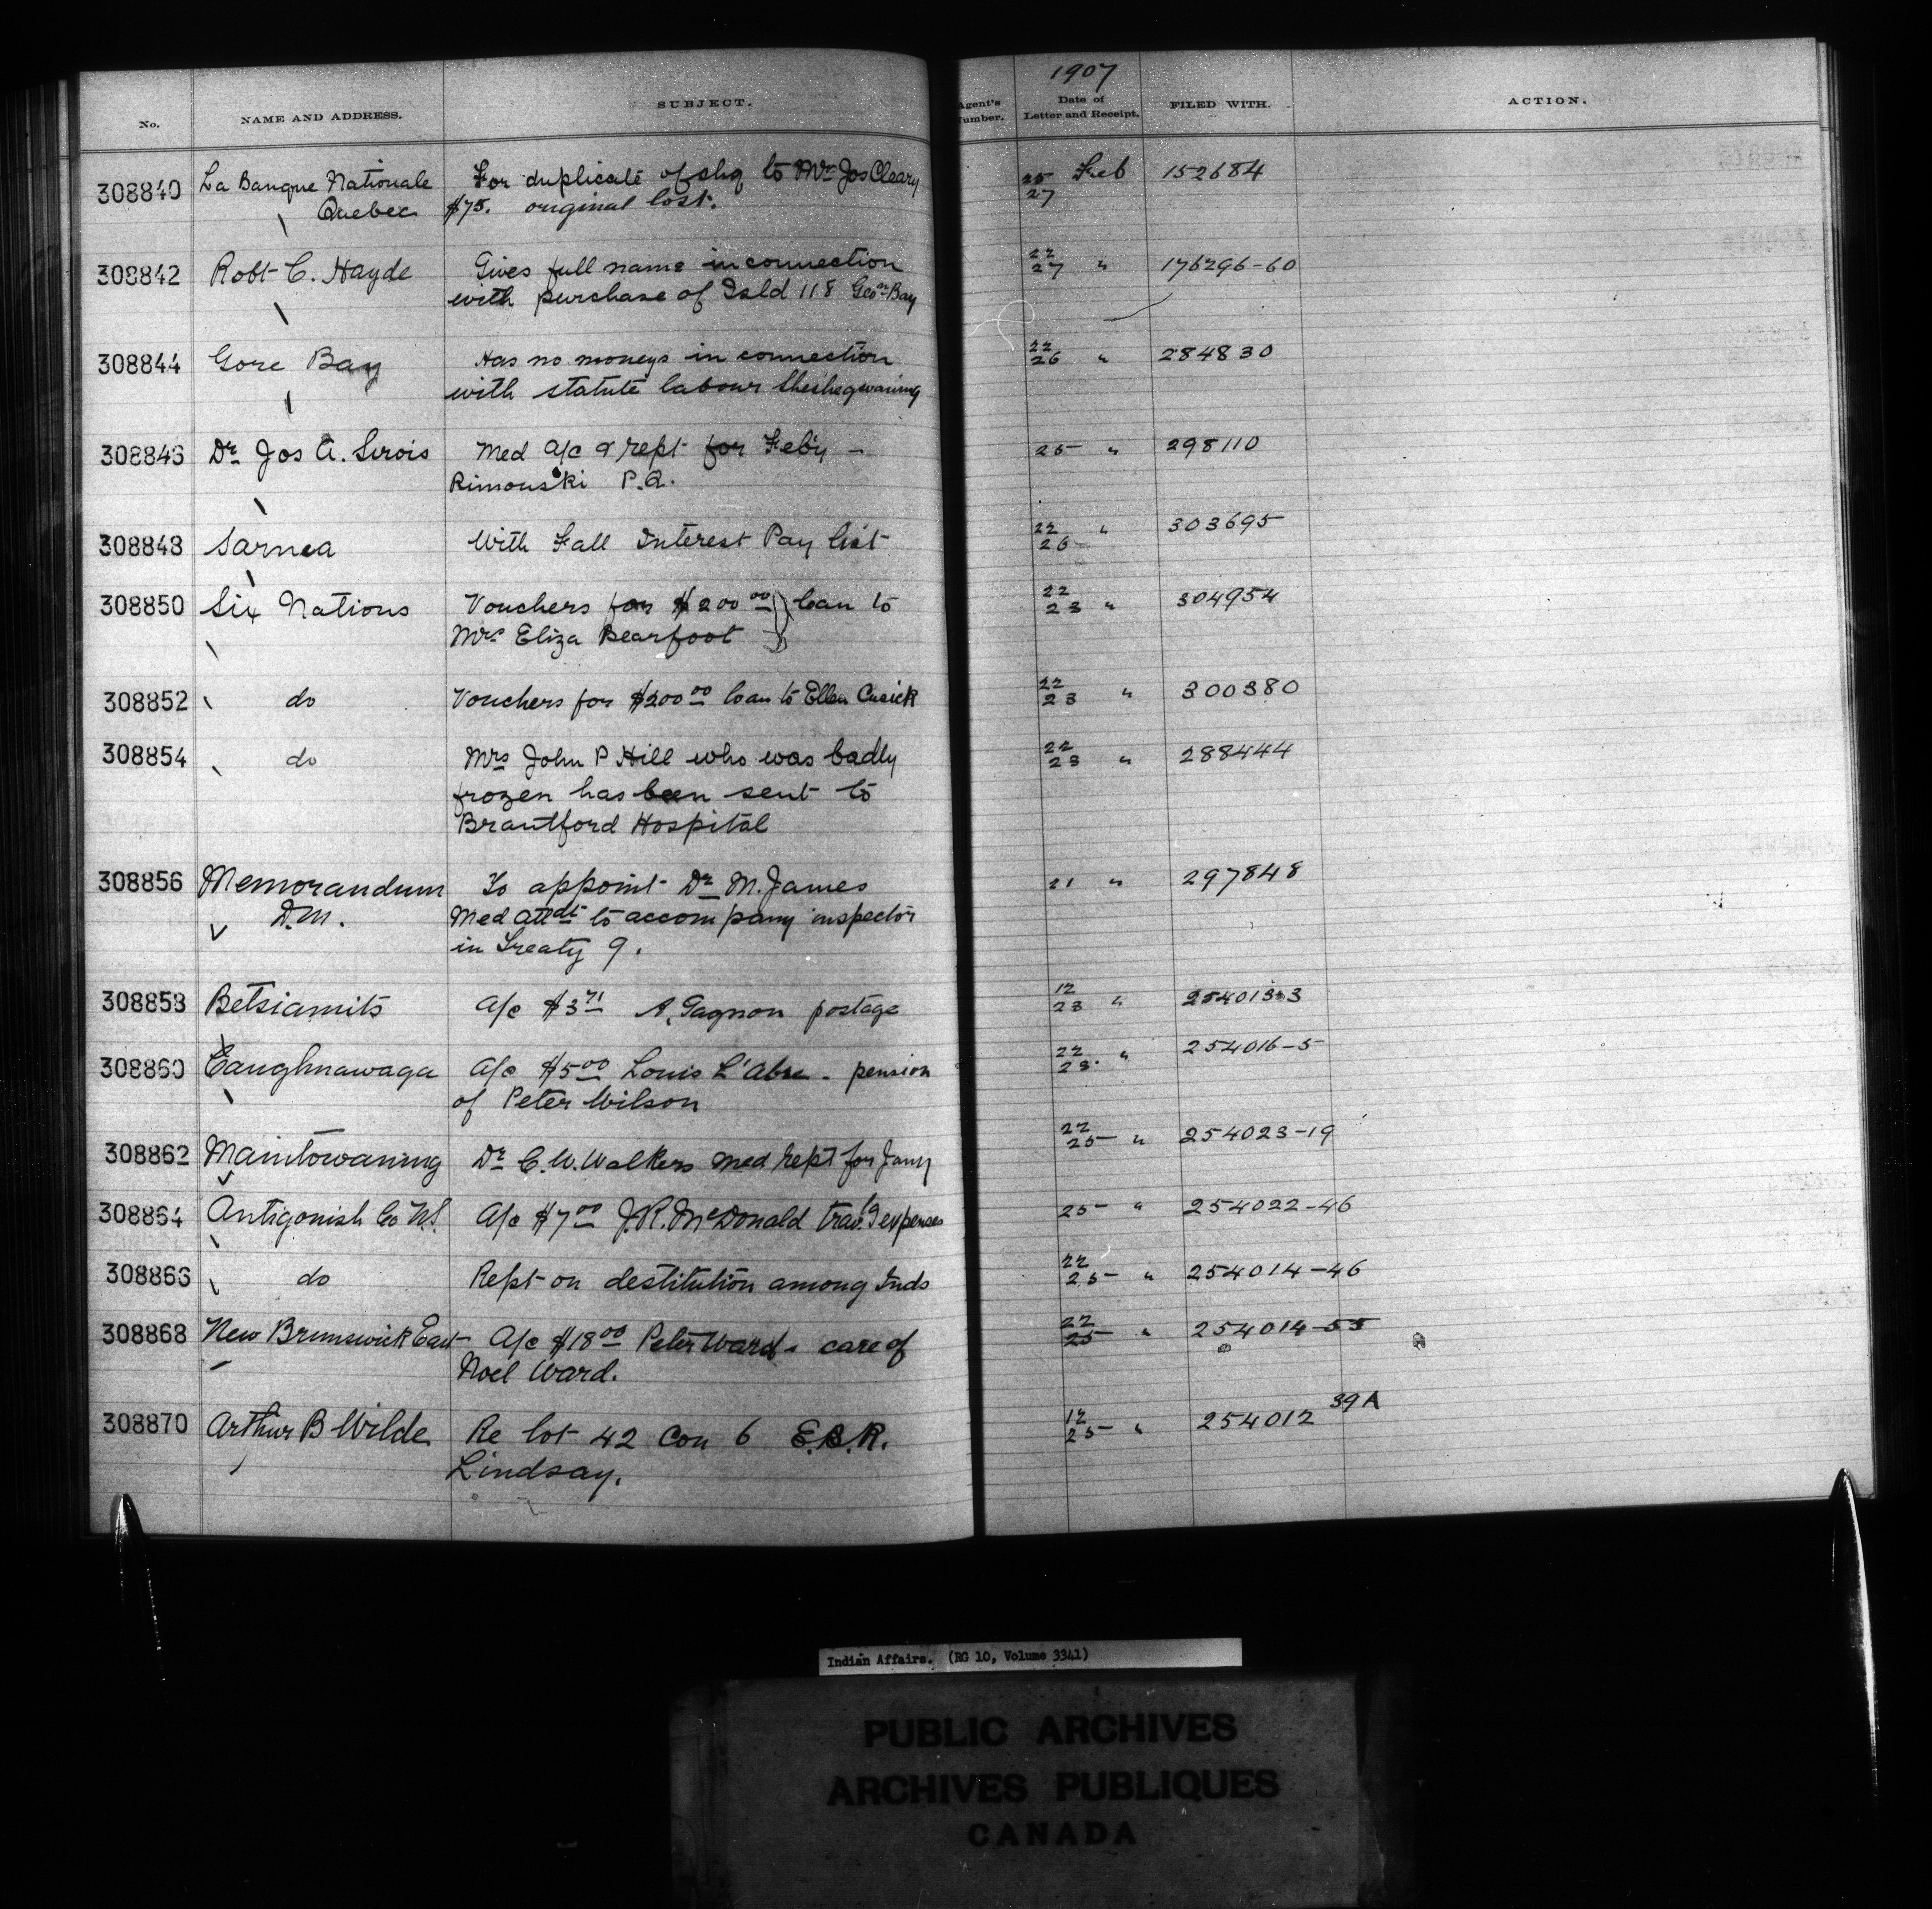 1907
No. NAME AND ADDRESS. SUBJECT. Agent's Number. Date of Letter and Receipt. FILED WITH. ACTION.
308840 La Banque Nationale For duplicate of chq to Mr Jos Cleary 25 Feb 152684
Quebec $75. original lost. 27
308842 Robt C. Hayde Gives full name in connection 22 27 " 176296-60
with purchase of Isld 118 Geon Bay
308844 Gore Bay Has no moneys in connection 22 26 " 284830
with statute labour Sheshegwaning
308846 Dr Jos A. Sirois Med a/c & rept for Feby - 25 " 298110
Rimouski P.Q.
308848 Sarnia With Fall Interest Pay list 22 26 " 303695
308850 Six Nations Vouchers for $200 00 } loan to 22 23 " 304954
Mrs Eliza Bearfoot
308852 do Vouchers for $200 00 loan to Ellen Cusick 22 23 " 300380
308854 do Mrs John P Hill who was badly 22 23 " 288444
frozen has been sent to
Brantford Hospital
308856 Memorandum To appoint Dr M. James 21 " 297848
D.M. Med attdt to accompany inspector
in Treaty 9.
308858 Betsiamits a/c $3 71 A. Gagnon postage 12 23 "
308860 Caughnawaga a/c $5 00 Louis L'Abbe - pension 22 23 " 254016-5
of Peter Wilson
308862 Manitowaning Dr C. W. Walkers med rept for Jany 22 25 " 254023-19
308864 Antigonish Co N.S. a/c $7 00 J. R. McDonald trav.'g expenses 25 " 254022-46
308866 do Rept on destitution among Inds 22 25 " 254014-46
308868 New Brunswick East a/c $18 00 Peter Ward - care of 22 25 " 254014-55
Noel Ward.
308870 Arthur B Wilde Re lot 42 Con 6 E.B.R. 12 25 " 254012 39A
Lindsay.
Indian Affairs. (RG 10, Volume 3341)
PUBLIC ARCHIVES
ARCHIVES PUBLIQUES
CANADA